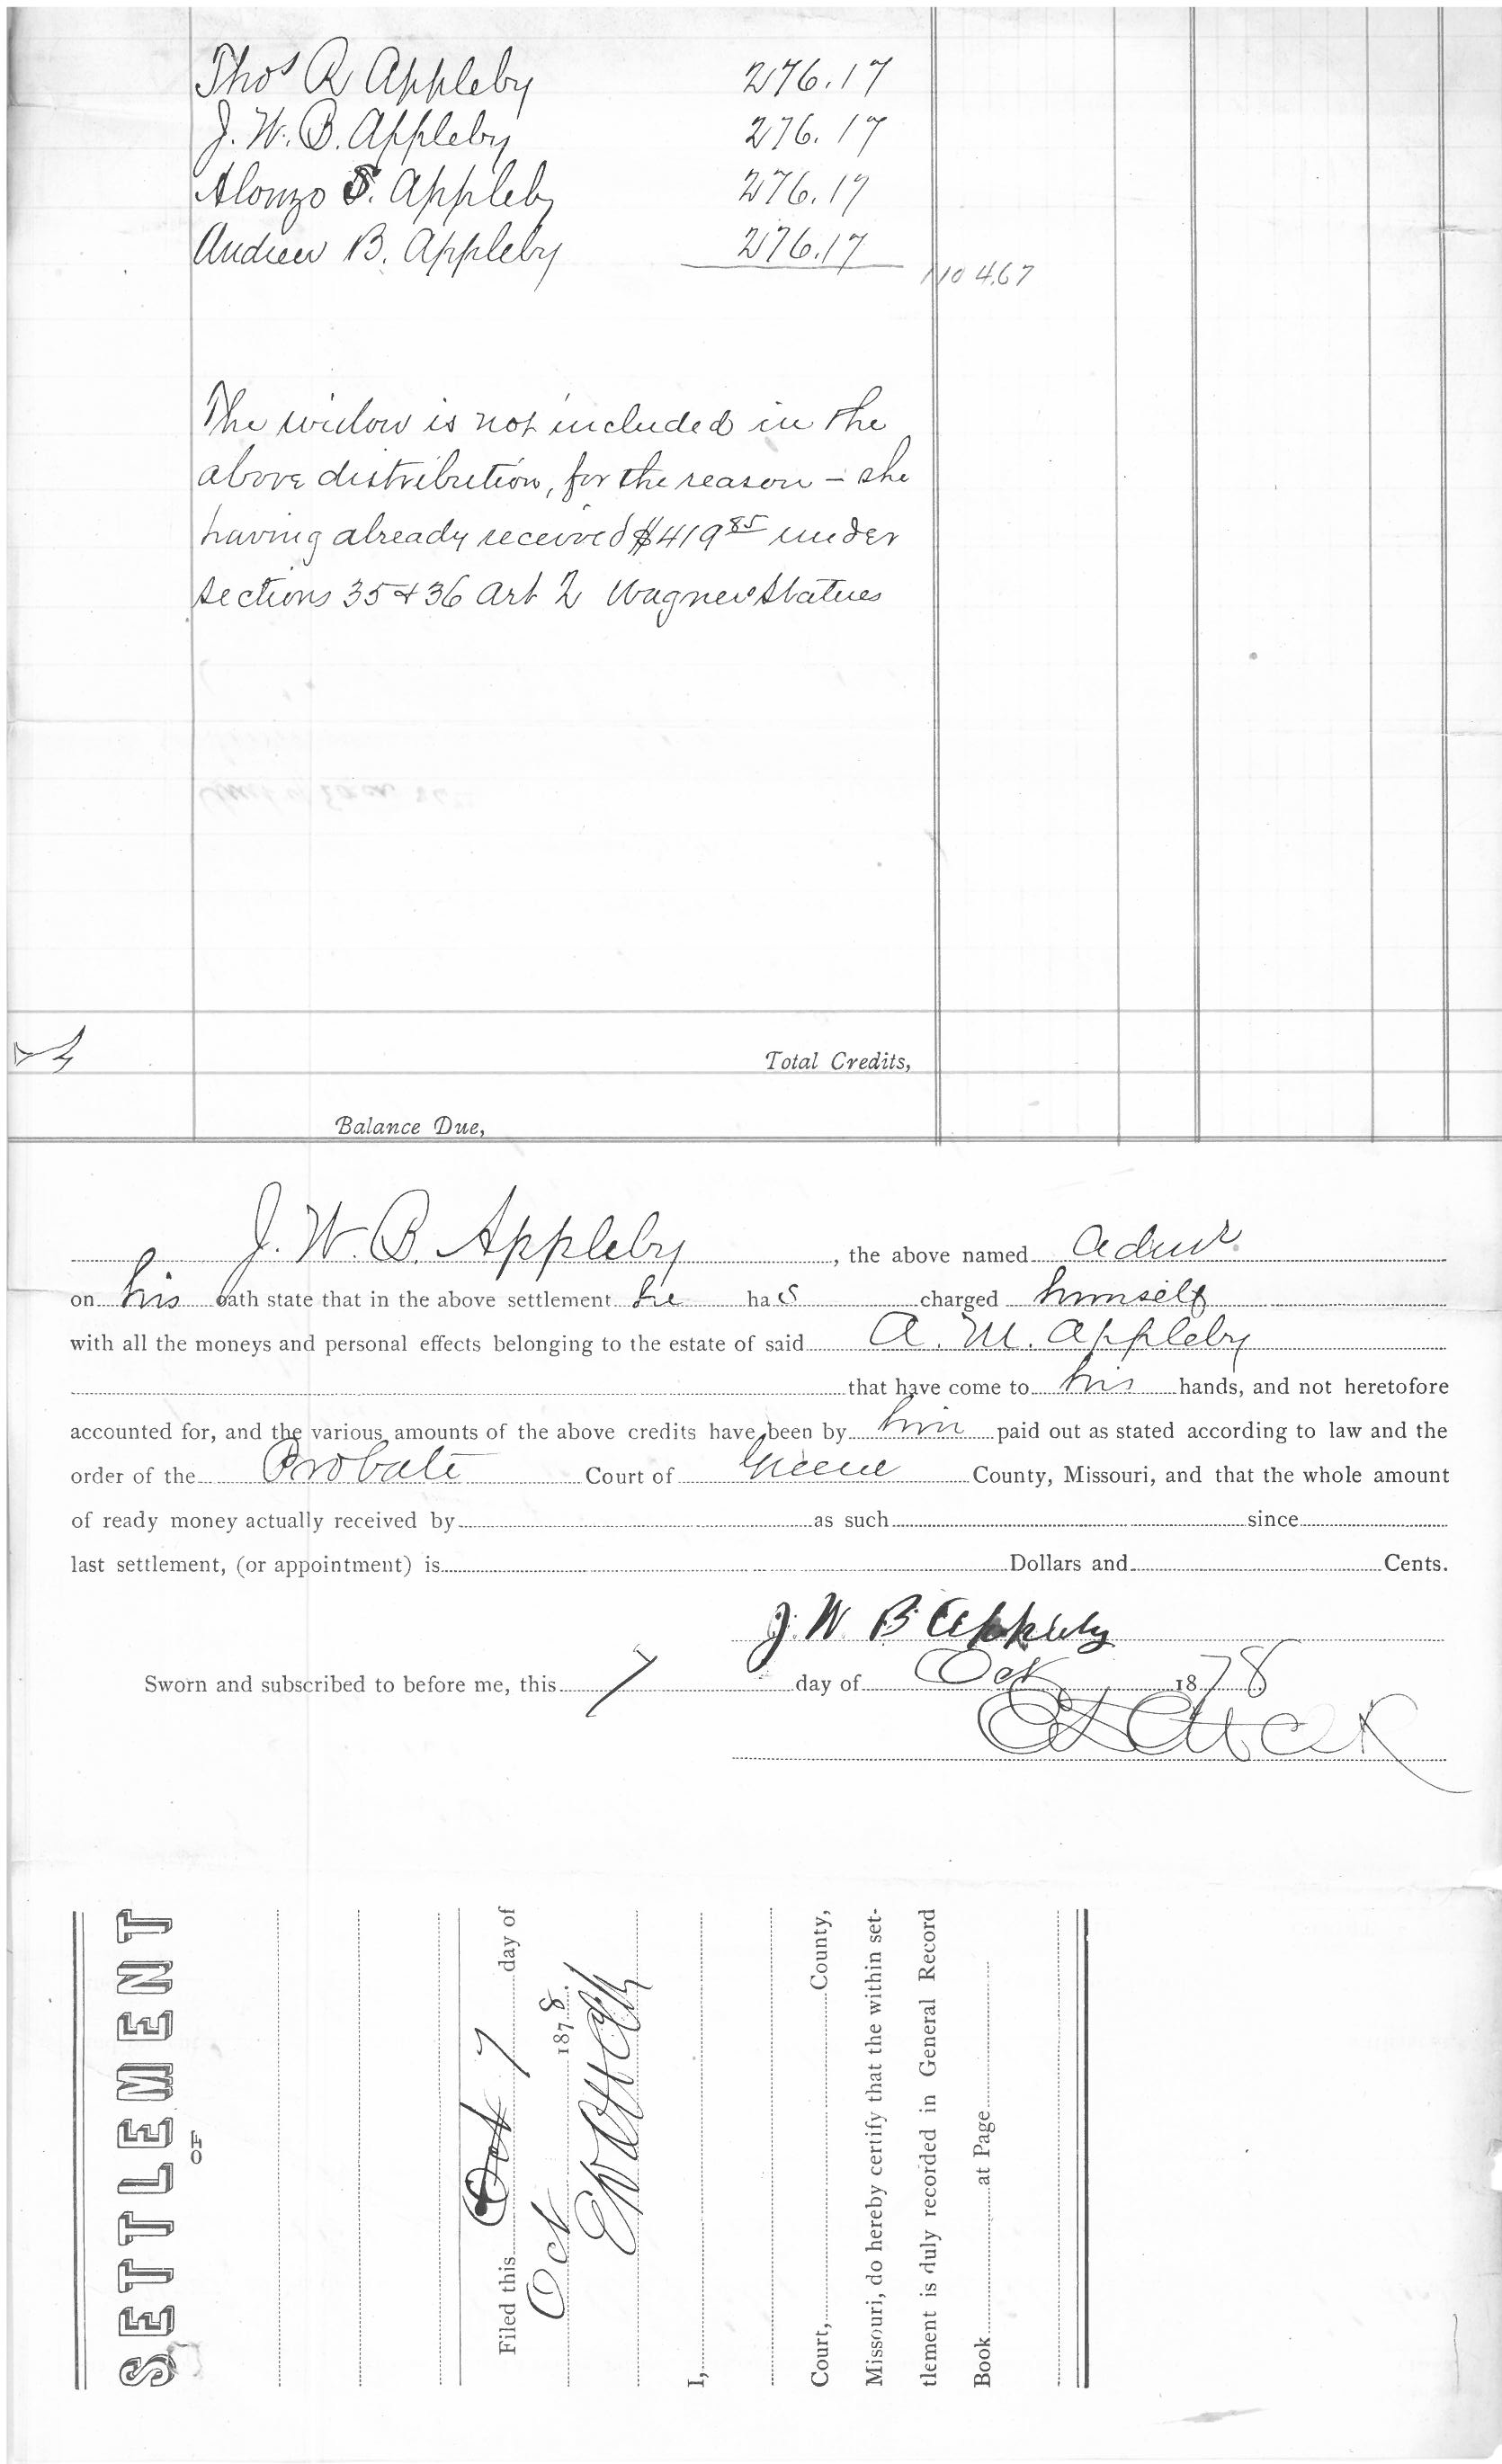 Thos R Appleby 276.17
J. W. B. Appleby 276.17
Alonzo S. Appleby 276.17
Andrew B. Appleby 276.17
1104.67
The widow is not included in the
above distribution, for the reason – she
having already received $419 85 under
sections 35 & 36 Art 2 Wagners Statues
Total Credits,
Balance Due,
J. W. B. Appleby, the above named Admr.
on his oath state that in the above settlement he has charged himself
with all the moneys and personal effects belonging to the estate of said A. M. Appleby
that have come to his hands, and not heretofore
accounted for, and the various amounts of the above credits have been by him paid out as stated according to law and the
order of the Probate Court of Greene County, Missouri, and that the whole amount
of ready money actually received by as such since
last settlement, (or appointment) is Dollars and Cents.
J. W. B. Appleby
Sworn and subscribed to before me, this 7 day of Oct 1878
SETTLEMENT
OF
Filed this Oct 7 day of
Oct 1878.
I,
Court, County,
Missouri, do hereby certify that the within set-
tlement is duly recorded in General Record
Book at Page